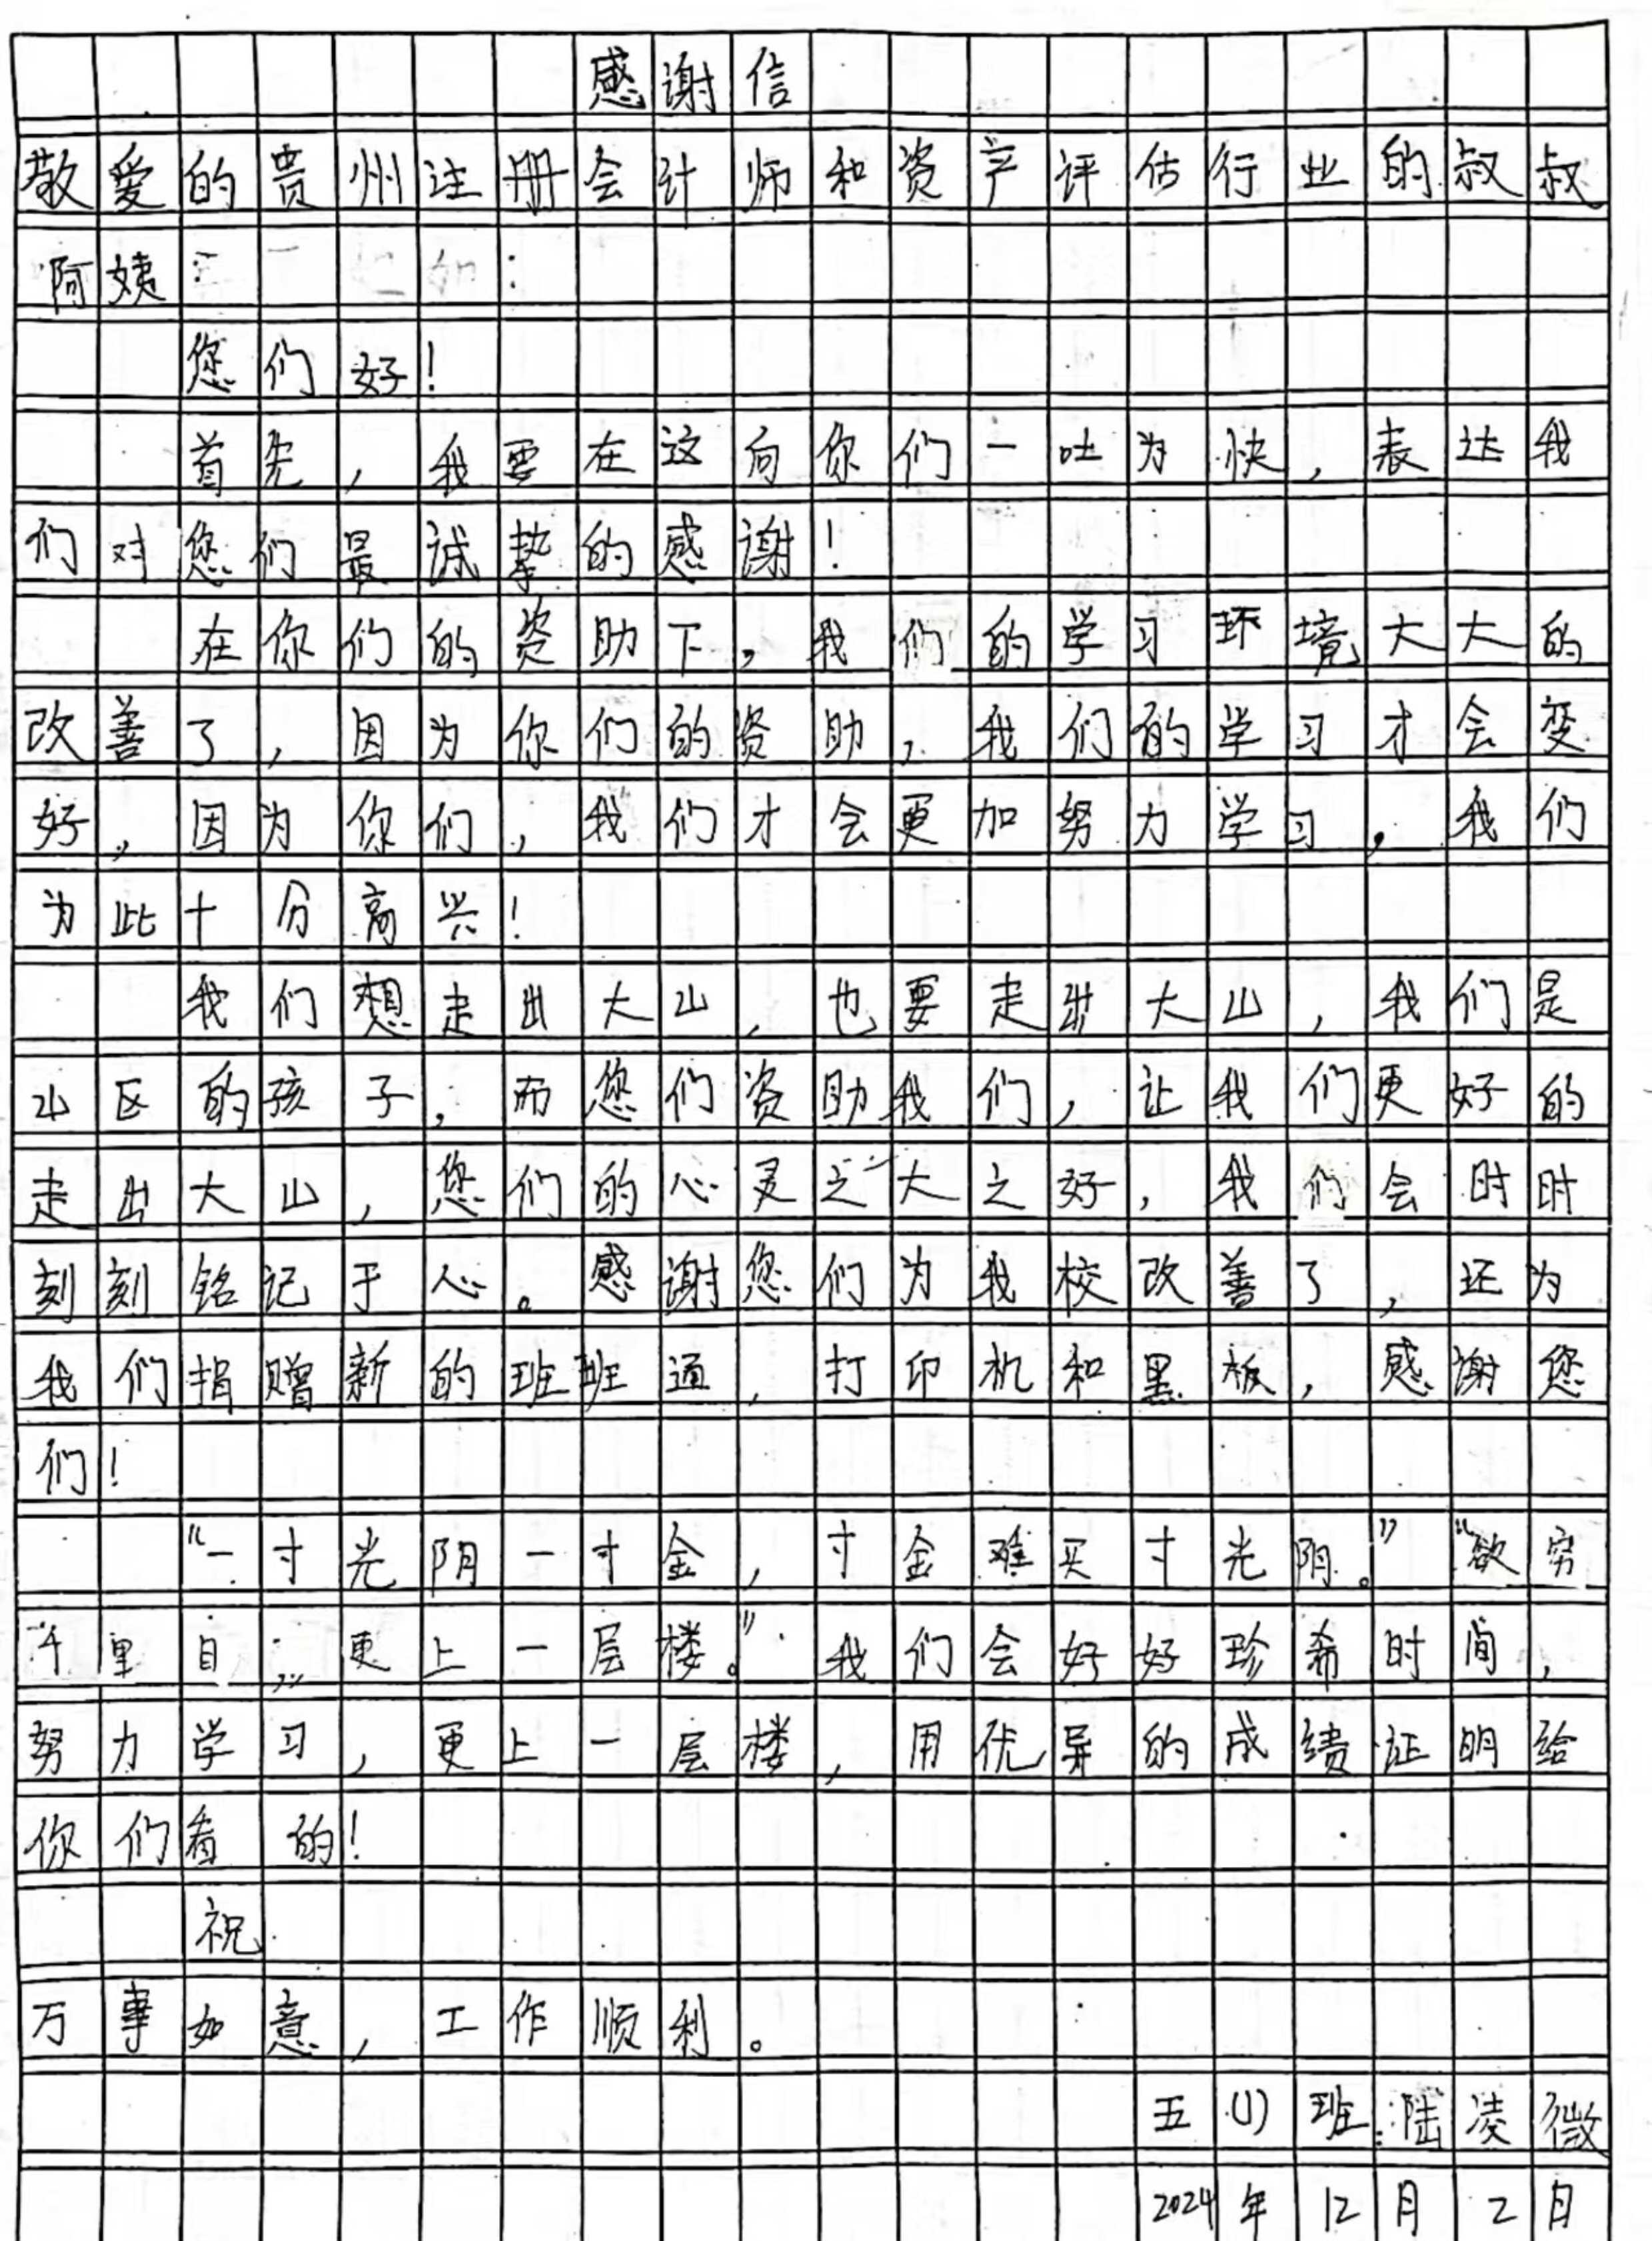 感谢信
敬爱的贵州注册会计师和资产评估行业的叔叔
阿姨:
您们好!
首先,我要在这向你们一吐为快,表达我
们对您们最诚挚的感谢!
在你们的资助下,我们的学习环境大大的
改善了,因为你们的资助,我们的学习才会变
好,因为你们,我们才会更加努力学习,我们
为此十分高兴!
我们想走出大山,也要走出大山,我们是
山区的孩子,而您们资助我们,让我们更好的
走出大山,您们的心灵之大之好,我们会时时
刻刻铭记于心。感谢您们为我校改善了,还为
我们捐赠新的班班通,打印机和黑板,感谢您
们!
“一寸光阴一寸金,寸金难买寸光阴。”“欲穷
千里目,更上一层楼。”我们会好好珍希时间,
努力学习,更上一层楼,用优异的成绩证明给
你们看的!
祝
万事如意,工作顺利。
五(1)班:陆凌微
2024年12月2日